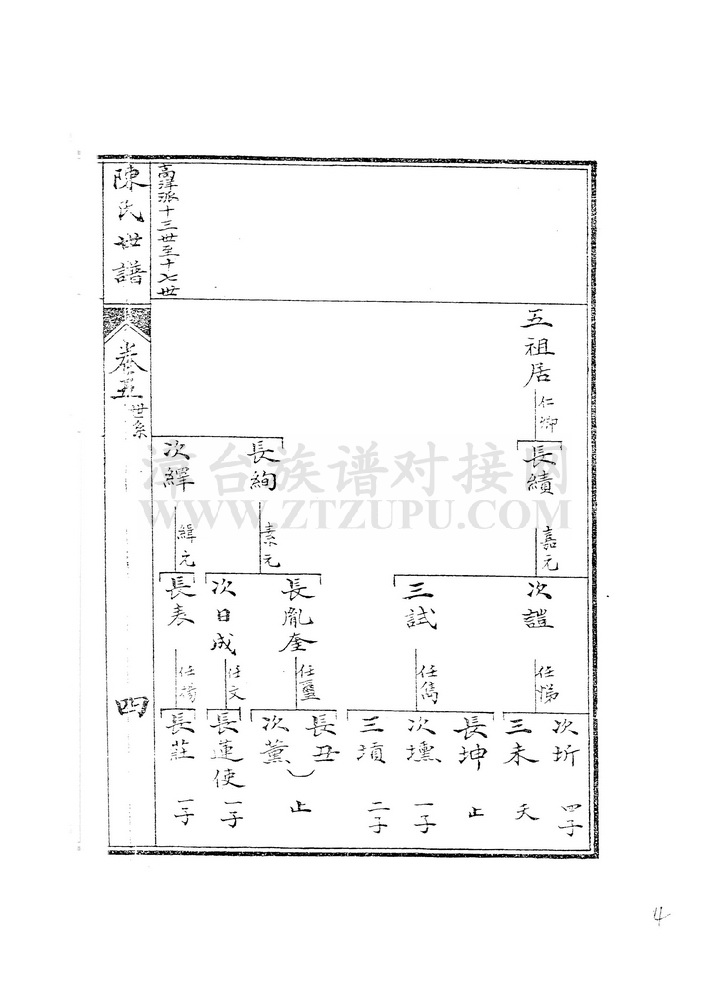 高洋派十三世至十七世
陳氏世譜
卷五
世系
四
五祖居
仁卿
長績
長絢
次繹
嘉元
素元
緝元
次諠
三試
長胤奎
次日成
長表
任悌
任雋
任璽
任文
任楊
次圻
四子
三未
夭
長坤
止
次壎
一子
三塤
二子
長丑
次薰
止
長蓮使
一子
長莊
一子
漳台族谱对接网
WWW.ZTZUPU.COM
4